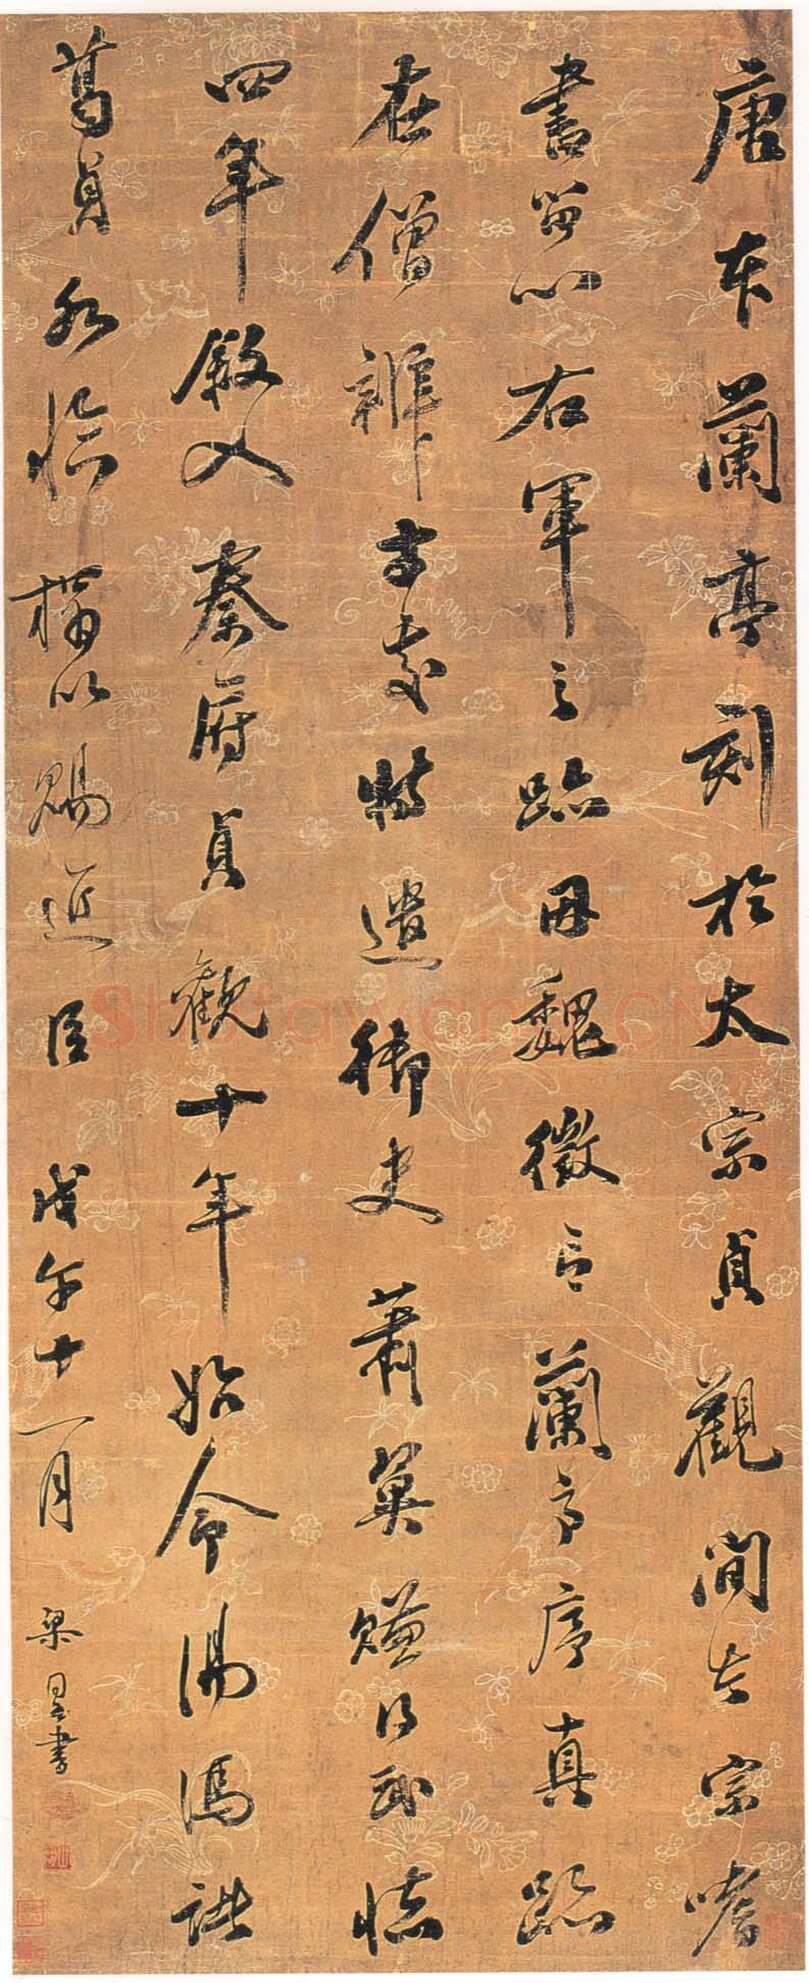 唐本蘭亭刻於太宗貞觀間太宗嗜
書留心右軍之跡因魏徵言蘭亭序真跡
在僧辨才處特遣御史蕭翼賺得武德
四年敘入秦府貞觀十年始令湯馮諸
葛貞臨搨以賜近臣 戊午十一月 梁書
Shufawang.CN